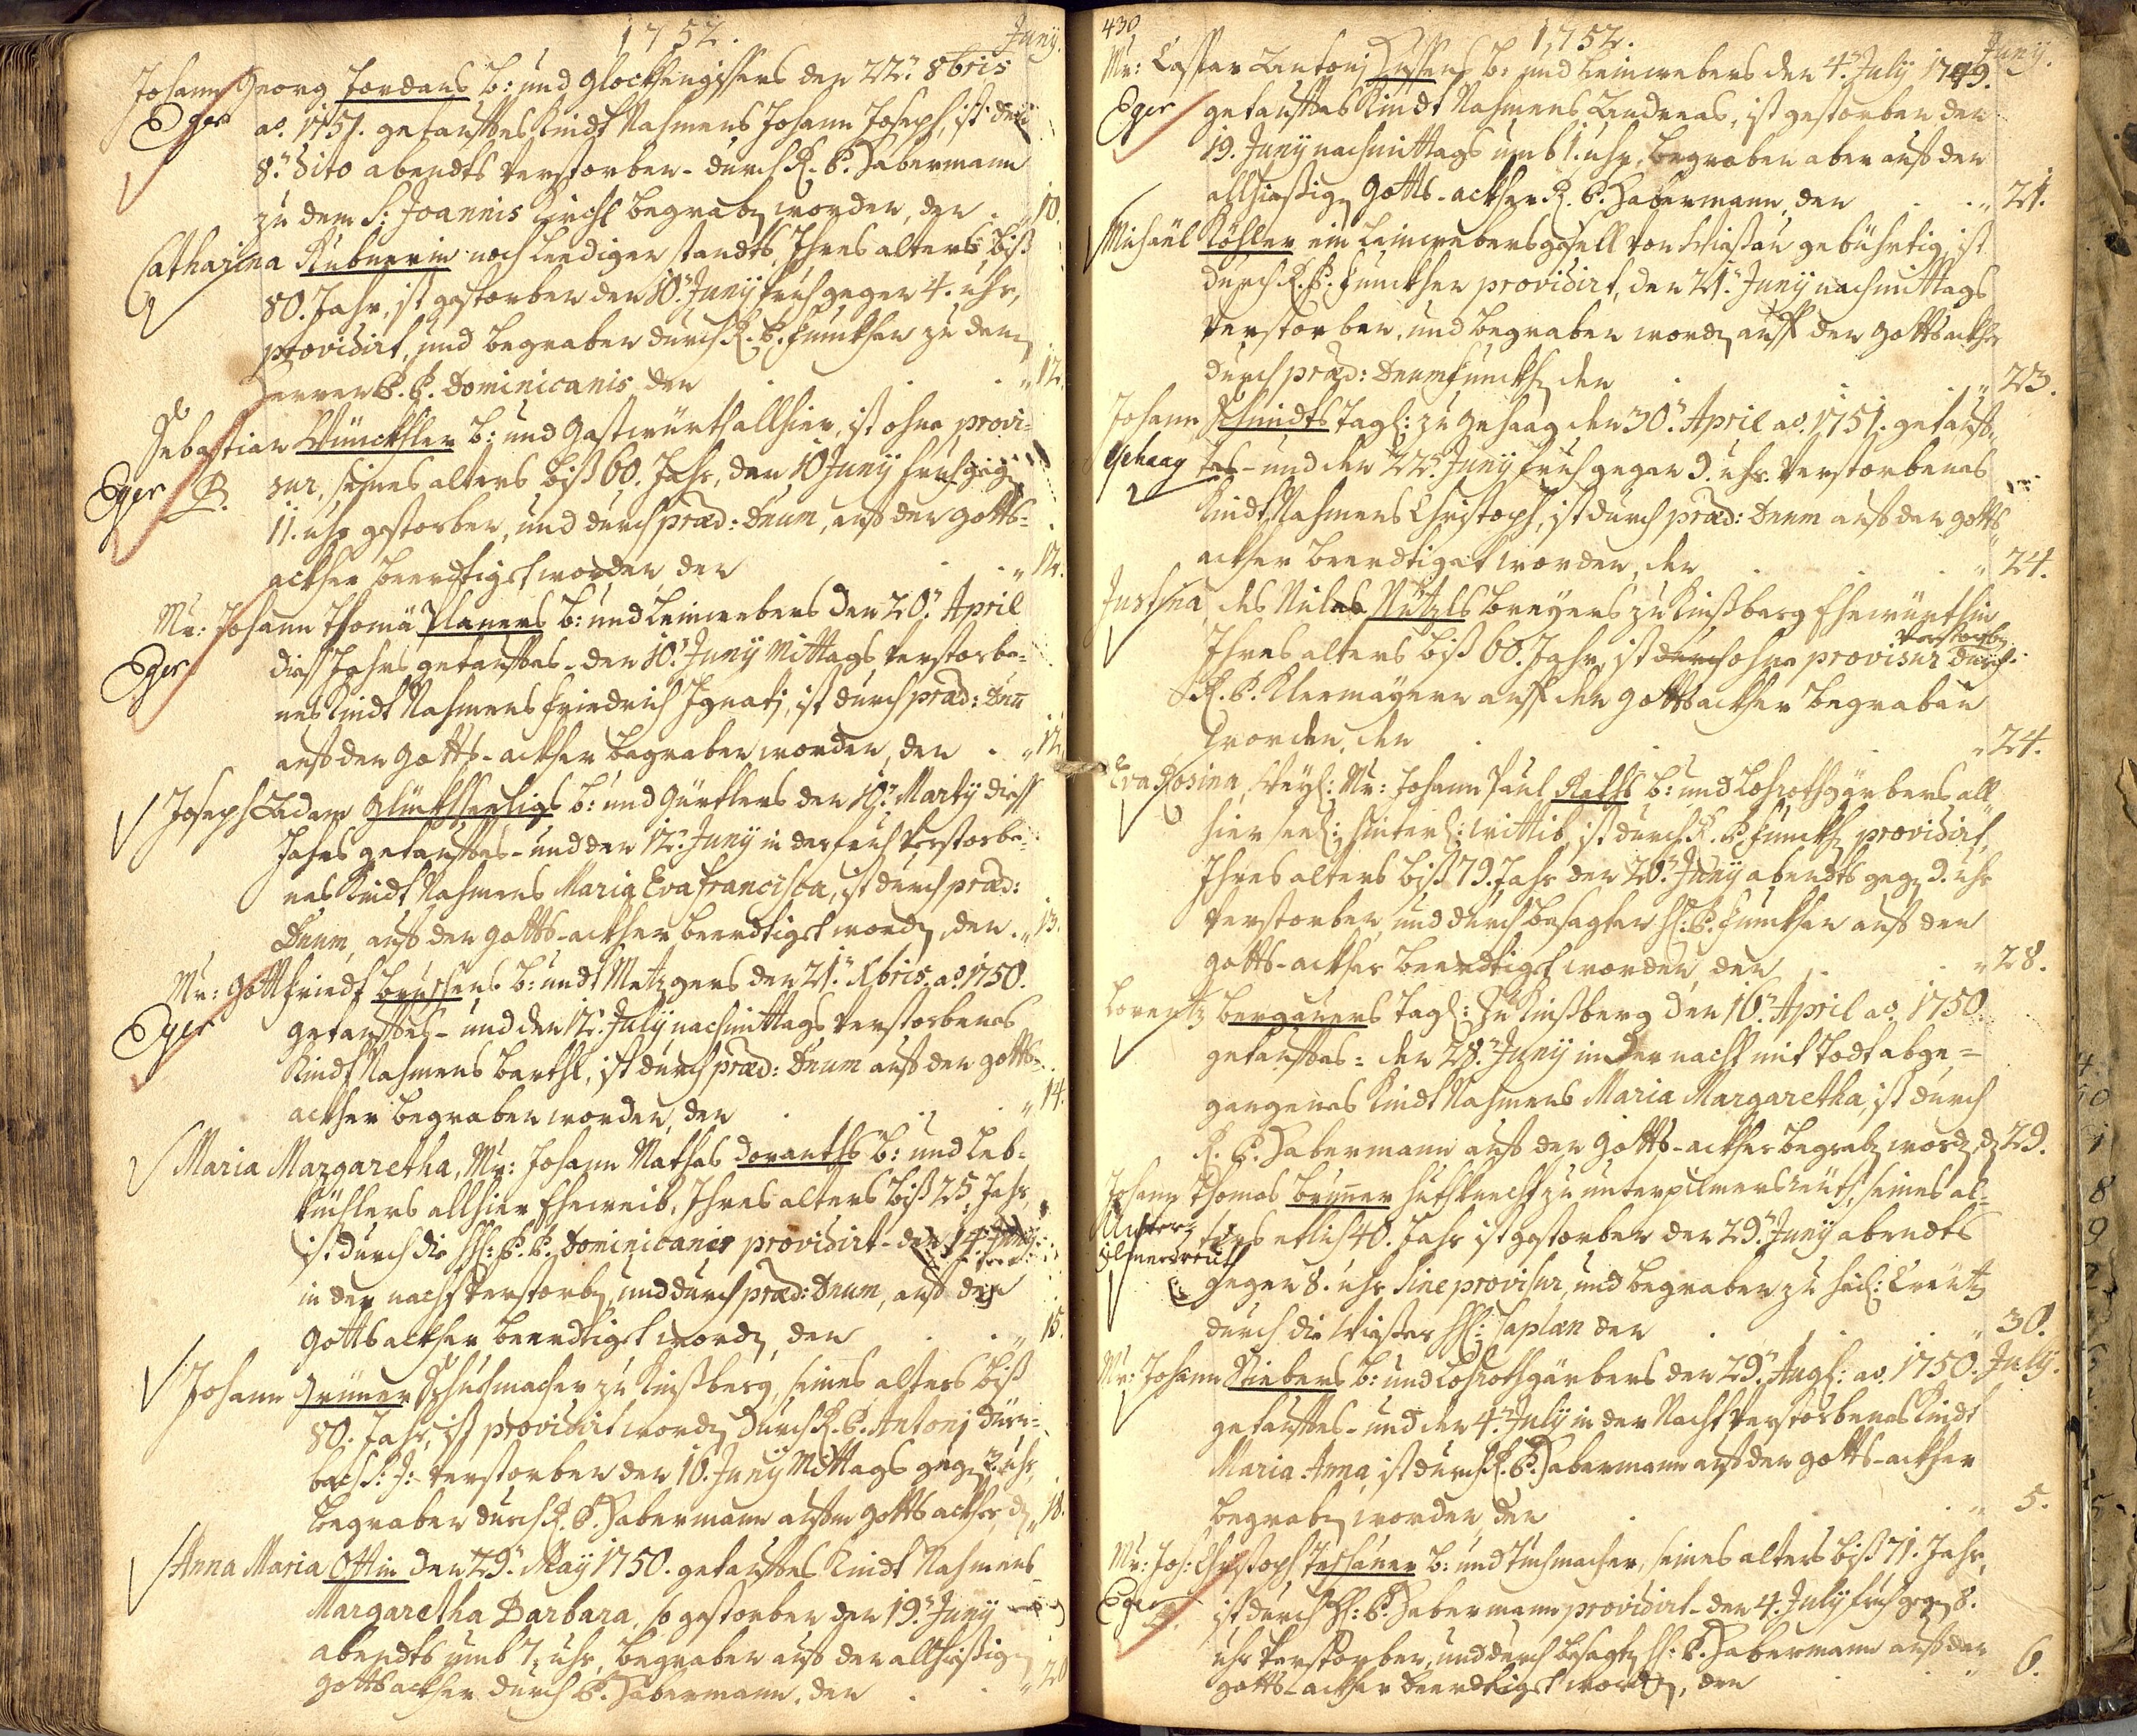 1752.
Juny.
Johann Georg Jordans b: und Glockhengissers den 22." 8bris
Eger
ao. 1751. getaufftes Kindt Nahmens Johann Joseph, ist den
8." dito abendts verstorben - durch R. P. Habermann
zu dem S: Joannis Kirchl begraben worden, den . " 10.
Catharina Rubnerin noch leediger standts, Ihres alters biß
80. Jahr, ist gestorben den 10." Juny fruh gegen 4. uhr,
providirt, und begraben durch R. P. Funckher zu denen
Herren P. P. Dominicanis den . . . " 12.
Sebastian Wünckhler b: und Gastwürth allhier, ist ohne provi-
Eger
sur, seines alters biß 60. Jahr, den 10 Juny fruh gegen
11. uhr gestorben, und durch præd: Dnum, auf den Gotts-
ackher beerdtiget worden den . . " 12.
Mr: Johann Thomä Planers b: und Leinwebers den 20." April
Eger
dieß Jahrs getaufftes - den 10." Juny Mittags verstorbe-
nes Kindt Nahmens Friedrich Ignatj, ist durch præd: Dnū
auf den Gotts-ackher begraben worden, den . " 12.
Joseph Adam Glückhseeligs b: und Gürtlers den 10." Marty dieß
Jahrs getaufftes - und den 12." Juny in der fruh verstorbe-
nes Kindt Nahmens Maria Eva Francisca, ist durch præd:
Dnum, auf den Gotts-ackher beerdtiget worden den . " 13.
Mr: Gottfriedt b: undt Metzgers den 21." Xbris. ao. 1750.
Eger
getaufftes - und den 12." July nachmittags verstorbenes
Kindt Nahmens Barthl, ist durch præd: Dnum auf den Gotts-
ackher begraben worden, den . . . " 14.
Maria Margaretha, Mr: Johann Mathas Doranths b: und Leb-
küchlers allhier Eheweib, Ihres alters biß 25 Jahr,
ist durch die HH: P. P. Dominicaner providirt - den 14." Juny
in der nacht verstorben, und durch præd: Dnum, auf den
Gottsackher beerdtiget worden, den . . " 15.
Johann Gruner Schuhmacher zu Kinßberg, seines alters biß
80. Jahr, ist providirt worden durch R. P. Antonj Dürn-
bach S: J: verstorben den 16. Juny Mittags gegen 3 uhr,
begraben durch R. P. Habermann auf dem Gottsackher, den " 18.
Anna Maria Ottin den 29." May 1750. getaufftes Kindt Nahmens
Margaretha Barbara, so gestorben den 19." Juny
abendts umb 7. uhr, begraben auf den allhießigen
Gottsackher durch P. Habermann, den . . " 20
430
1752.
Juny.
Mr: Caspar Antonj b: und Leinwebers den 4." July 1749.
Eger
getaufftes Kindt Nahmens Andreas, ist gestorben den
19. Juny nachmittags umb 1. uhr, begraben aber auf den
allhießigen Gotts-ackher R. P. Habermann, den . . " 21.
Michaël Köhler ein Leinwebersgesell von gebührtig, ist
durch R. P. Funckher providirt, den 21." Juny nachmittags
verstorben, und begraben worden auff den Gottsackher
durch præd: Dnum Funckher den . . " 23.
Johann Schmidts tagl: zu Gehaag den 30." April ao. 1751. getauff-
Gehaag
tes - und den 22." Juny fruh gegen 9. uhr verstorbenes
Kindt Nahmens Christoph, ist durch præd: Dnum auf den Gotts-
ackher beerdtiget worden, den . . " 24.
Justina, des Niclas Nützls breyers zu Kinßberg Ehewürthin
Ihres alters biß 60. Jahr, ist durch ohne provisur verstorben durch
R. P. Klermayern auff den Gottsackher begraben
worden, den . . . " 24.
Eva Rosina, Weyl: Mr: Johann Paul Raths b: und Lohrothgärbers all-
hier seel: hinterl: wittib, ist durch R. P. Funckher providirt,
Ihres alters biß 79. Jahr den 26." Juny abendts gegen 9. uhr
verstorben, und durch besagten H: P. Funckher auf den
Gotts-ackher beerdtiget worden, den . . " 28.
Lorentz Bergauers tagl: zu Kinßberg den 16." April ao. 1750.
getaufftes - den 28." Juny in der nacht mit todt abge-
gangenes Kindt Nahmens Maria Margaretha, ist durch
R. P. Habermann auf den Gotts-ackher begraben worden den 29.
Johann Thomas Bruner huthknecht zu unterpilmersreuth, seines al-
Unter-
pilmersreuth
ters etlich 40. Jahr ist gestorben den 29." Juny abendts
gegen 8. uhr sine provisur, und begraben zu heil: Creutz
durch die HH: Caplän den . . . " 30.
July.
Mr: Johann Stiebers b: und Lohrothgärbers den 29." Augl: ao. 1750.
getaufftes - und den 4." July in der Nacht verstorbenes Kindt
Maria Anna, ist durch R. P. Habermann auf den Gotts-ackher
begraben worden, den . . " 5.
Mr: Joh: Christoph Teschauer b: und tuchmacher, seines alters biß 71. Jahr,
Eger
ist durch H: P. Habermann providirt - den 4. July fruh gegen 8.
uhr verstorben, und durch besagten H: P. Habermann auf den
Gotts-ackher beerdtiget worden, den . . . 6.